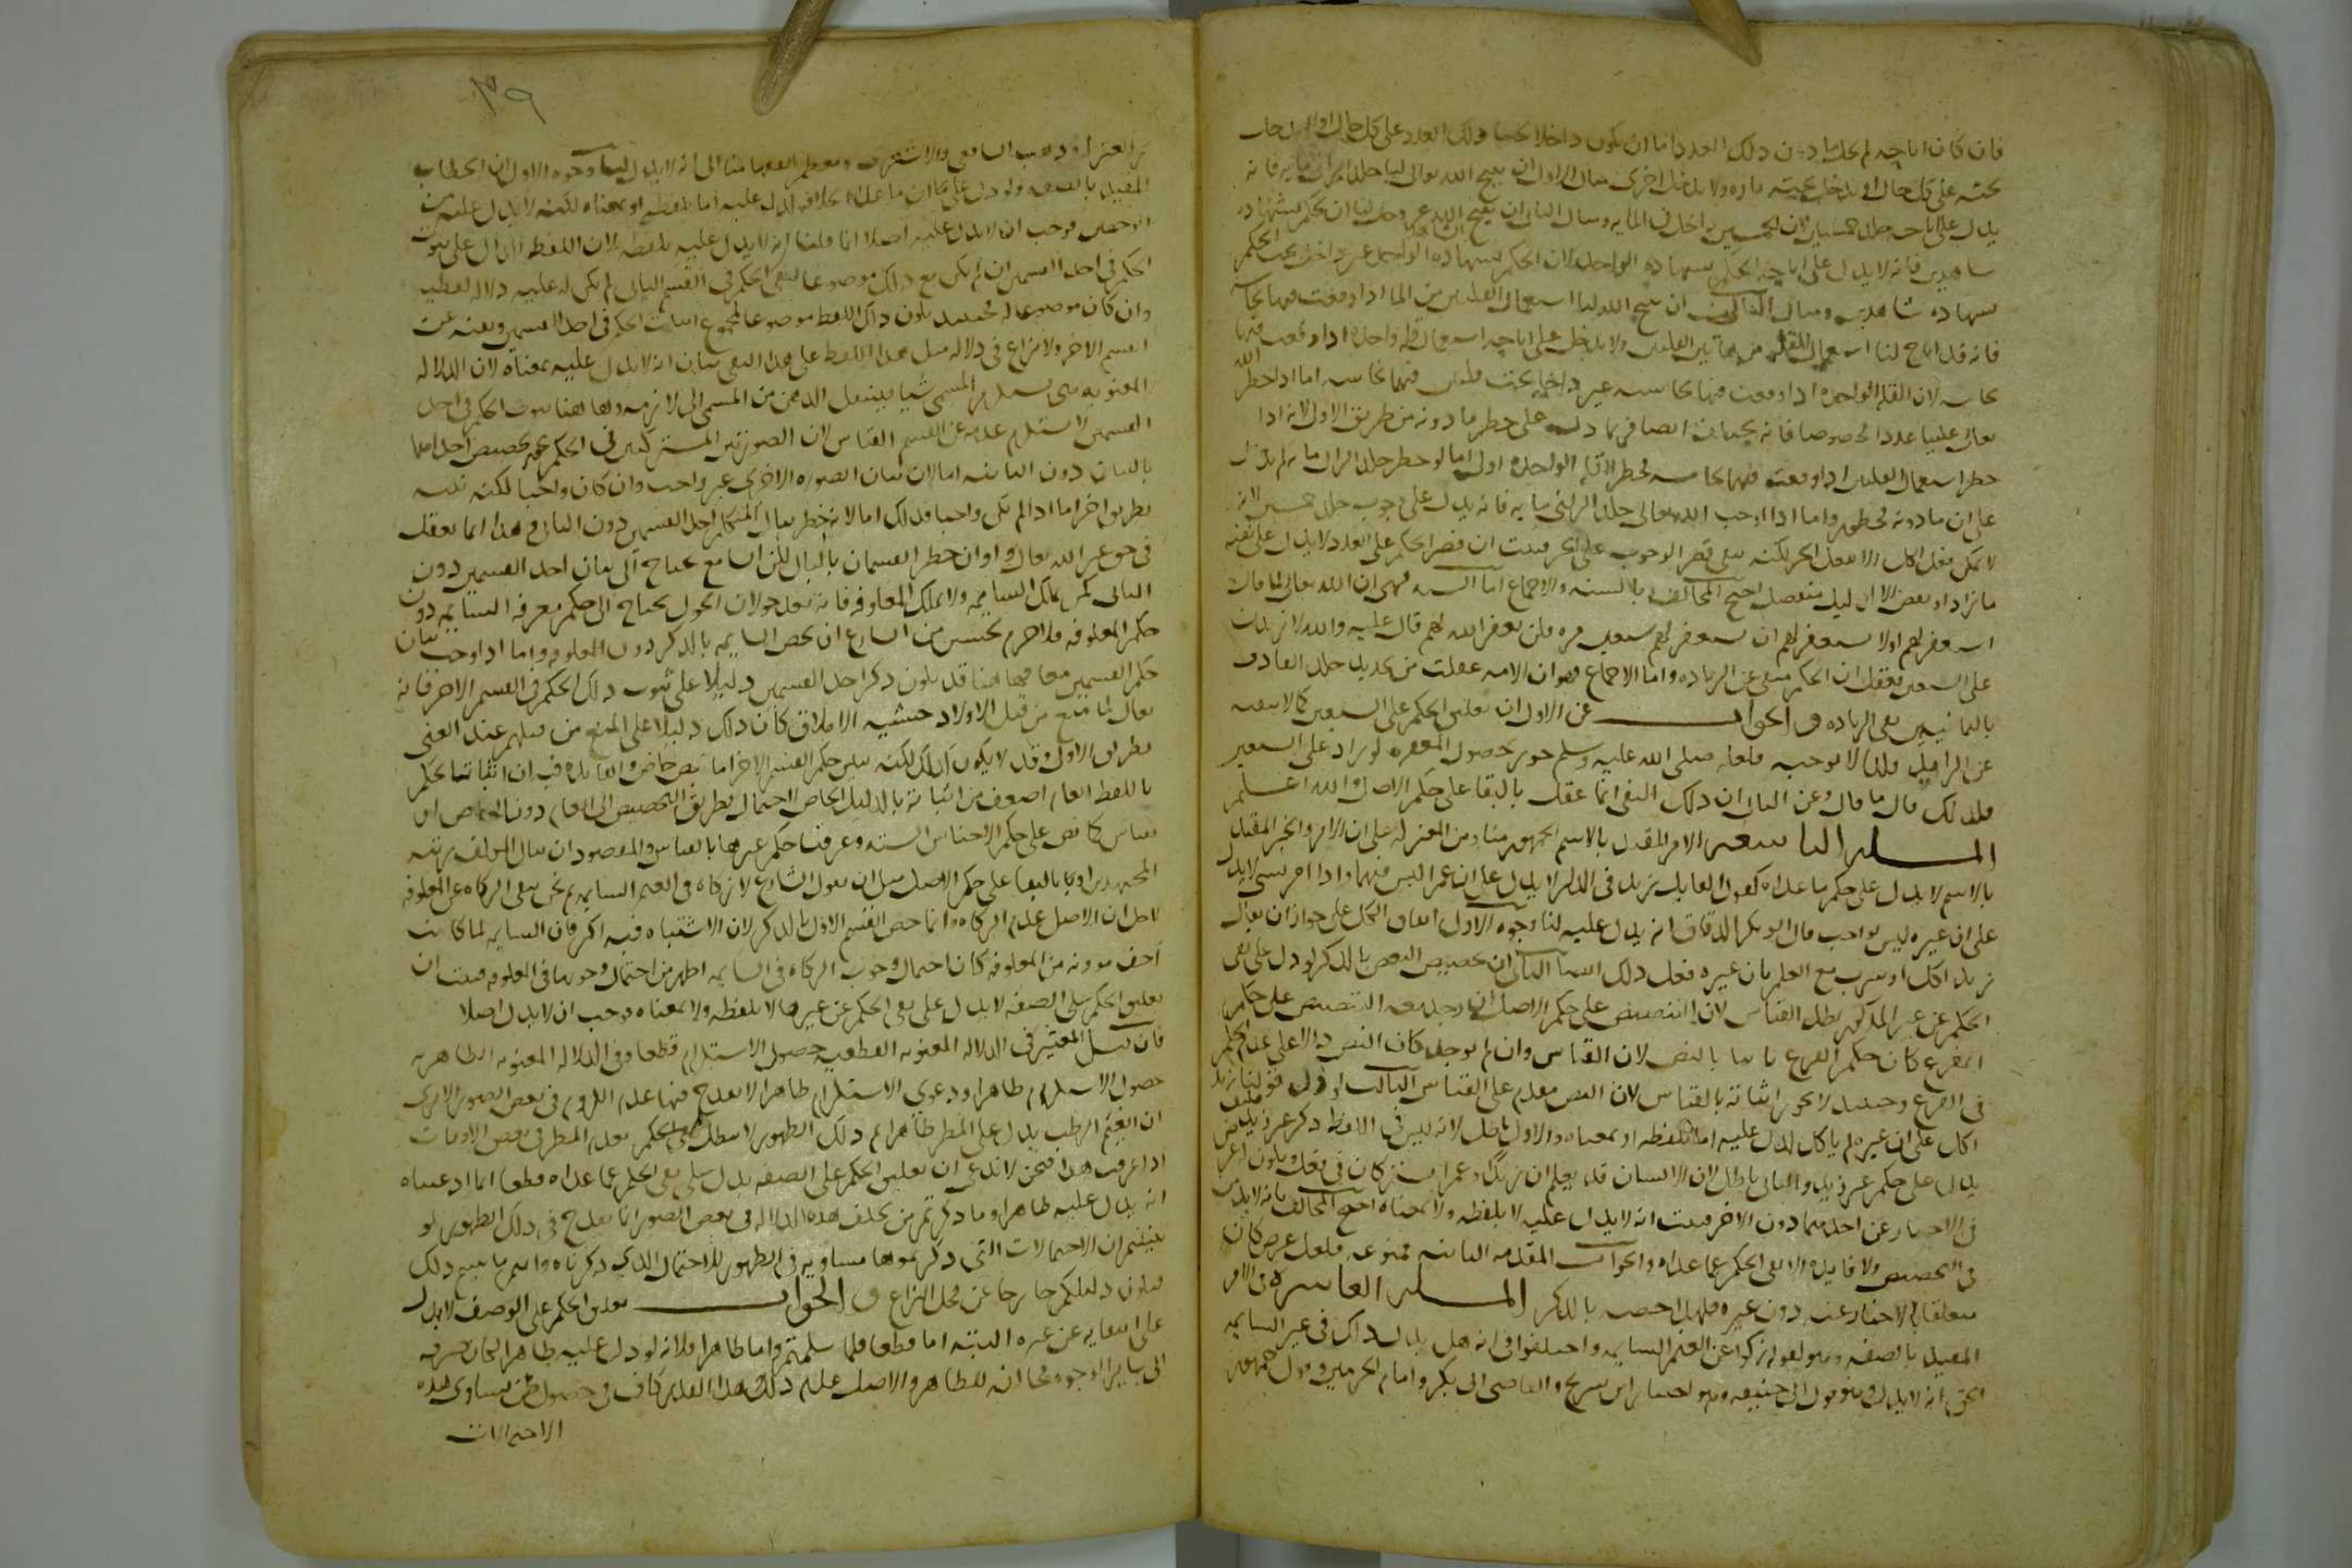 فان كان اباحه لم يخل ما دون ذلك العدد اما ان يكون داخلا تحت ذلك العدد على كل حال او
تحته على كل حال او يدخل تحته تاره ولا يدخل اخرى مثال الاول ان يبيح الله تعالى لنا جلد الزانى مايه فانه
يدل على اباحه جلد خمسين لان الخمسين داخل فى المايه ومثال الثانى ان يبيح الله عز وجل لنا ان نحكم بشهاده
شاهدين فانه لا يدل على اباحه الحكم بشهاده الواحد لان الحكم بشهاده الواحد غير داخل تحت الحكم
بشهاده شاهدين ومثال الثالث ان يبيح الله لنا استعمال القلتين من الما اذا وقعت فيهما نجاسه
فانه قد اباح لنا استعمال القله من هاتين القلتين ولا يدخل على اباحه استعمال قله واحده اذا وقعت فيها
نجاسه لان القله الواحده اذا وقعت فيها نجاسه غير داخله تحت قلتين فيهما نجاسه اما اذا حظر الله
تعالى علينا عددا مخصوصا فانه يختلف ايضا فربما دل على حظر ما دونه من طريق الاولى لانه اذا
حظر استعمال القلتين اذا وقعت فيهما نجاسه فحظر القله الواحده اولى اما لو حظر جلد الزانى مايه لم يدل
على ان ما دونه محظور واما اذا اوجب الله تعالى جلد الزانى مايه فانه يدل على وجوب جلد خمسين لانه
لا يمكن فعل الكل الا بفعل الجز لكنه ينفى قصر الوجوب على الجز فثبت ان قصر الحكم على العدد لا يدل على نفيه
ما زاد او نقص الا لدليل منفصل احتج المخالف بالسنه والاجماع اما السنه فهى ان الله تعالى لما قال
استغفر لهم او لا تستغفر لهم ان تستغفر لهم سبعين مره فلن يغفر الله لهم قال عليه والله لازيدن
على السبعين فعقل ان الحكم منفى عن الزياده واما الاجماع فهو ان الامه عقلت من تحديد جلد القاذف
بالثمانين نفى الزياده والجواب عن الاول ان تعليق الحكم على السبعين كما لا ينفيه
عن الزايد فلذا لا يوجبه فلعله صلى الله عليه وسلم جوز حصول المغفره لو زاد على السبعين
فلذلك قال ما قال وعن الثانى ان ذلك النفى انما عقل بالبقا على حكم الاصل والله اعلم
المسله التاسعه الامر المقيد بالاسم الجمهور منا ومن المعتزله على ان الامر والخبر المقيد
بالاسم لا يدل على حكم ما عداه كقول القايل زيد فى الدار لا يدل على ان عمرا ليس فيها واذا امر بشى لا يدل
على ان غيره ليس بواجب قال ابو بكر الدقاق انه يدل عليه لنا وجوه الاول اتفاق الكل على جواز ان يقال
زيد اكل او شرب مع العلم بان غيره فعل ذلك ايضا الثانى ان تخصيص النص بالذكر لو دل على نفى
الحكم عن غير المذكور بطل القياس لان التنصيص على حكم الاصل ان وجد معه التنصيص على حكم
الفرع كان حكم الفرع ثابتا بالنص لا بالقياس وان لم يوجد كان النص دالا على عدم الحكم
فى الفرع وحينيذ لا يجوز اثباته بالقياس لان النص مقدم على القياس الثالث لو دل قولنا زيد
اكل على ان غيره لم ياكل لدل عليه اما بلفظه او بمعناه والاول باطل لانه ليس فى اللفظ ذكر غير زيد فكيف
يدل على حكم غير زيد والثانى باطل لان الانسان قد يعلم ان زيدا وعمرا مشتركان فى فعل ويكون له غرض
فى الاخبار عن احدهما دون الاخر فثبت انه لا يدل عليه لا بلفظه ولا بمعناه احتج المخالف بانه لا بد من فايده
فى التخصيص ولا فايده الا نفى الحكم عما عداه والجواب المقدمه الثانيه ممنوعه فلعل غرضه كان
متعلقا بالاخبار عنه دون غيره فلهذا خصه بالذكر المسله العاشره فى الامر
المقيد بالصفه وهو كقوله زكوا عن الغنم السايمه واختلفوا فى انه هل يدل ذاك فى غير السايمه
الحق انه لا يدل وهو قول ابى حنيفه وهو اختيار ابن سريج والقاضى ابى بكر وامام الحرمين وقول جمهور
٣٩
المعتزله وذهب الشافعى والاشعرى ومعظم الفقها منا الى انه لا يدل لنا وجوه الاول ان الخطاب
المقيد بالصفه لو دل على ان ما عداه بخلافه لدل عليه اما بلفظه او بمعناه لكنه لا يدل عليه من
الوجهين فوجب ان لا يدل عليه اصلا انما قلنا انه لا يدل عليه بلفظه لان اللفظ الدال على ثبوت
الحكم فى احد القسمين ان لم يكن مع ذلك موضوعا لنفى الحكم فى القسم الثانى لم يكن له عليه دلاله لفظيه
وان كان موضوعا له فحينيذ يكون ذاك اللفظ موضوعا لمجموع اثبات الحكم فى احد القسمين ونفيه عن
القسم الاخر ولا نزاع فى دلاله مثل هذا اللفظ على هذا النفى بيان انه لا يدل عليه بمعناه لان الدلاله
المعنويه هى بسبب المسمى شيا فينتقل الذهن من المسمى الى لازمه وهاهنا ثبوت الحكم فى احد
القسمين لا يستلزم عدمه عن القسم الثانى لان الصورتين المشتركتين فى الحكم يجوز تخصيص احداهما
بالبيان دون الثانيه اما لان بيان الصوره الاخرى غير واجب وان كان واجبا لكنه بينه
بطريق اخر اما اذا لم يكن واجبا فذلك اما لانه خطر ببال المتكلم احد القسمين دون الثانى وهذا انما يعقل
فى حق غير الله تعالى او ان خطر القسمان بالبال لكن السامع محتاج الى بيان احد القسمين دون
الثانى كمن يملك السايمه ولا يملك المعلوفه فانه بعد حولان الحول يحتاج الى حكم معرفه السايمه دون
حكم المعلوفه فلا جرم يحسن من الشارع ان يخص السايمه بالذكر دون المعلوفه واما اذا وجب بيان
حكم القسمين معا فهاهنا قد يكون ذكر احد القسمين دليلا على ثبوت ذلك الحكم فى القسم الاخر فانه
تعالى لما منع من قتل الاولاد خشيه الاملاق كان ذلك دليلا على المنع من قتلهم عند الغنى
بطريق الاولى وقد لا يكون كذلك لكنه يبين حكم القسم الاخر اما بنص خاص والفايده فيه ان اثبات الحكم
باللفظ العام اضعف من اثباته بالدليل الخاص لاحتمال تطريق التخصيص الى العام دون الخاص او
بقياس كما نص على حكم الاجناس السته وعرفنا حكم غيرها بالقياس والمقصود ان ينال المكلف رتبه
المجتهدين او بالبقا على حكم الاصل مثل ان يقول الشارع لا زكاه فى الغنم السايمه ثم نحن ننفى الزكاه عن المعلوفه
لاجل ان الاصل عدم الزكاه وانما خص القسم الاول بالذكر لان الاشتباه فيه اكثر فان السايمه لما كانت
اخف موونه من المعلوفه كان احتمال وجوب الزكاه فى السايمه اظهر من احتمال وجوبها فى المعلوفه فثبت ان
تعليق الحكم على الصفه لا يدل على نفى الحكم عن غيرها لا بلفظه ولا بمعناه فوجب ان لا يدل اصلا
فان قيل المعتبر فى الدلاله المعنويه القطعيه حصول الاستلزام قطعا وفى الدلاله المعنويه الظاهره
حصول الاستلزام ظاهرا ودعوى الاستلزام ظاهرا لا يقدح فيها عدم اللزوم فى بعض الصور الا ترى
ان الغيم الرطب يدل على المطر ظاهرا ثم ذلك الظهور لا يبطل بعدم المطر فى بعض الاوقات
اذا عرفت هذا فنحن لا ندعى ان تعليق الحكم على الصفه يدل على نفى الحكم عما عداه قطعا انما ادعينا
انه يدل عليه ظاهرا وما ذكرتم من تخلف هذه الدلاله فى بعض الصور انما يقدح فى ذلك الظهور لو
بينتم ان الاحتمالات التى ذكرتموها مساويه فى الظهور للاحتمال الذى ذكرناه وانتم ما بينتم ذلك
فيكون دليلكم خارجا عن محل النزاع والجواب تعليق الحكم على الوصف لا يدل
على انتفايه عن غيره البته اما قطعا فلما سلمتم واما ظاهرا فلانه لو دل عليه ظاهرا لكان صرفه
الى ساير الوجوه مخالفه للظاهر والاصل عدم ذلك وهذا القدر كاف فى حصول ظن تساوى هذه
الاحتمالات